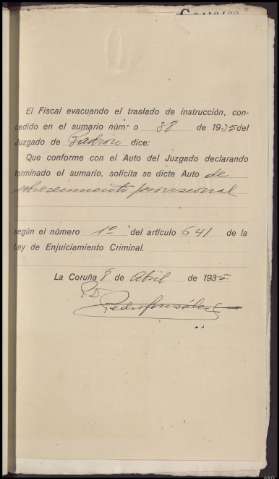 El Fiscal evacuando el traslado de instrucción, con-
cedido en el sumario núm. o 88 de 1935 del
Juzgado de Padron dice:
Que conforme con el Auto del Juzgado declarando
terminado el sumario, solicita se dicte Auto de
sobreseimiento provisional
según el número 1º del artículo 641 de la
Ley de Enjuiciamiento Criminal.
La Coruña 8 de Abril de 1935
P.D.
Pedro González